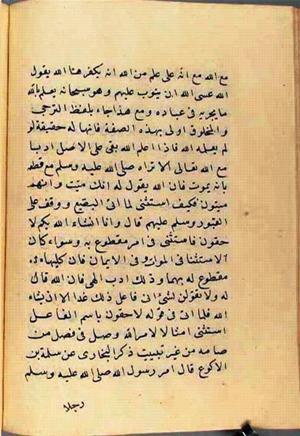 مع الله مع انه على علم من الله انه يكفر هنا الله يقول
الله عسى الله ان يتوب عليهم وهو سبحانه يعلم بالله
ما يجريه في عباده ومع هذا جاء بلفظ الترجي
والمخلوق اولى بهذه الصفة فانها له حقيقة لو
لم يعلمه الله فاذا اعلم الله بقى على الاصل ادبا
مع الله تعالى الا تراه صلى الله عليه وسلم مع قطعه
بانه يموت فان الله يقول له انك ميت وانهم
ميتون فكيف استثنى لما اتى البقيع ووقف على
القبور وسلم عليهم قال وانا انشاء الله بكم لا
حقون فاستثنى في امر مقطوع به وسواء كان
الاستثنا في الموت او في الايمان فان كليهما
مقطوع له بهما وذلك ادب الهى فان الله قال
له ولا تقولن لشئ انى فاعل ذلك غدا الا ان يشاء
الله فلما اتى في قوله لاحقون باسم الفاعل
استثنى امتثالا لامر الله وصل في فضل من
صامه من غير تبييت ذكر البخارى عن سلمة بن
الاكوع قال امر رسول الله صلى الله عليه وسلم
رجلا